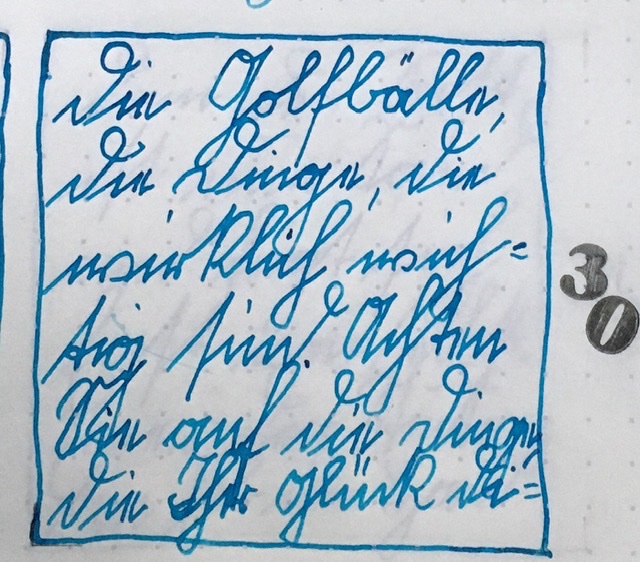 die Golfbälle,
die Dinge, die
wirklich wich=
tig sind. Achten
Sie auf die Dinge,
die Ihr Glück
30